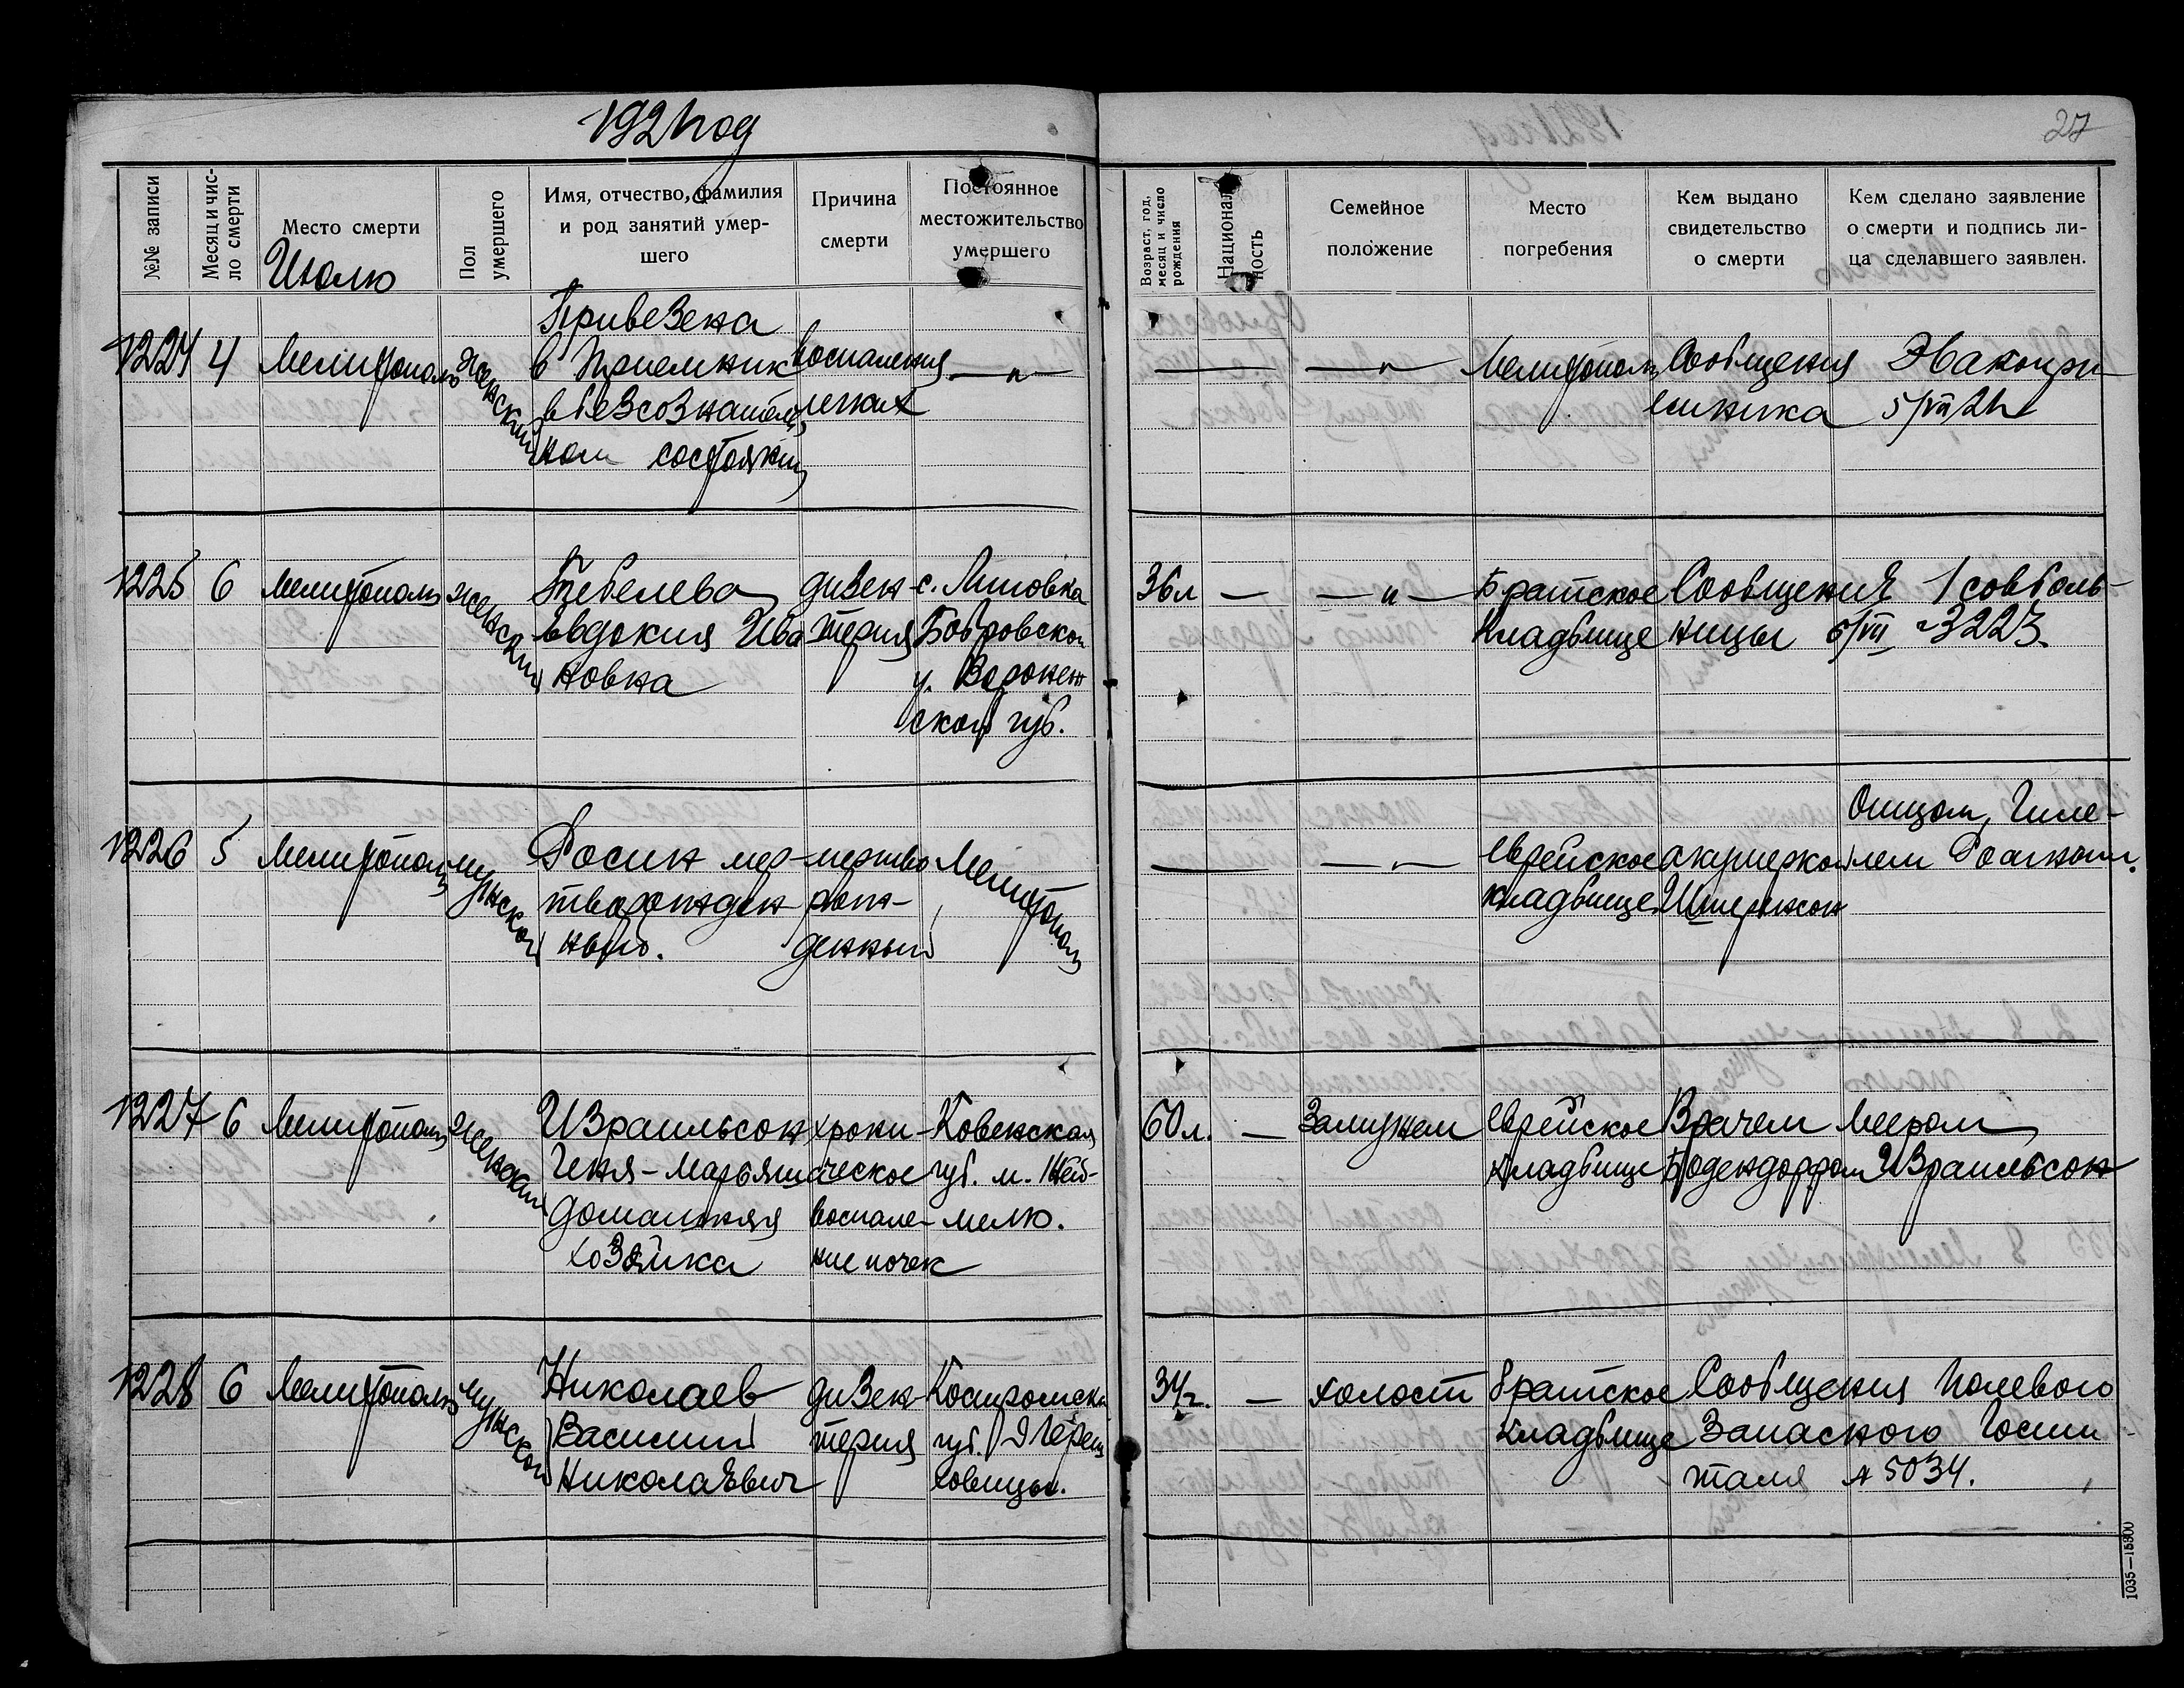 1921 год
27
№№ записи
Месяц и чис-
ло смерти
Место смерти
Июль
Пол
умершего
Имя, отчество, фамилия
и род занятий умер-
шего
Причина
смерти
Постоянное
местожительство
умершего
Возраст, год,
месяц и число
рождения
Националь-
ность
Семейное
положение
Место
погребения
Кем выдано
свидетельство
о смерти
Кем сделано заявление
о смерти и подпись ли-
ца сделавшего заявлен.
1224 4 Мелитополь женский
Привезена
в приемник
в безсознатель
ном состоянии
воспаления
легких
— " —
— — " — Мелитополь
Сообщения Эвакопри
емника 5/VII 21г
1225 6 Мелитополь женский
Тебелева
Евдокия Ива
новна
дизен
терия
с. Липовка
Бобровской
у. Воронеж
ской губ.
36 л — — " —
Братское
кладбище
Сообщения 1 совболь-
ницы 6/VII 3223.
1226 5 Мелитополь мужской
Росин мер-
творожден
ный.
мертво
рож-
денный
Мелитополь
— — " —
еврейское
кладбище
акушеркой
Отцом, Гиле-
лем
1227 6 Мелитополь женский
Израильсон
Геня-Марьяша
домашняя
хозяйка
хрони-
ческое
воспале-
ние почек
Ковенская
губ. м.
60 л. — Замужем
еврейское
кладбище
Врачем
Бодендорфом
Меером
Израильсон
1228 6 Мелитополь мужской
Николаев
Василий
Николаевич
дизен
терия
Костромская
губ.
34 г. — холост
братское
кладбище
Сообщения Полевого
Запасного Госпи
таля № 5034.
1035—15800